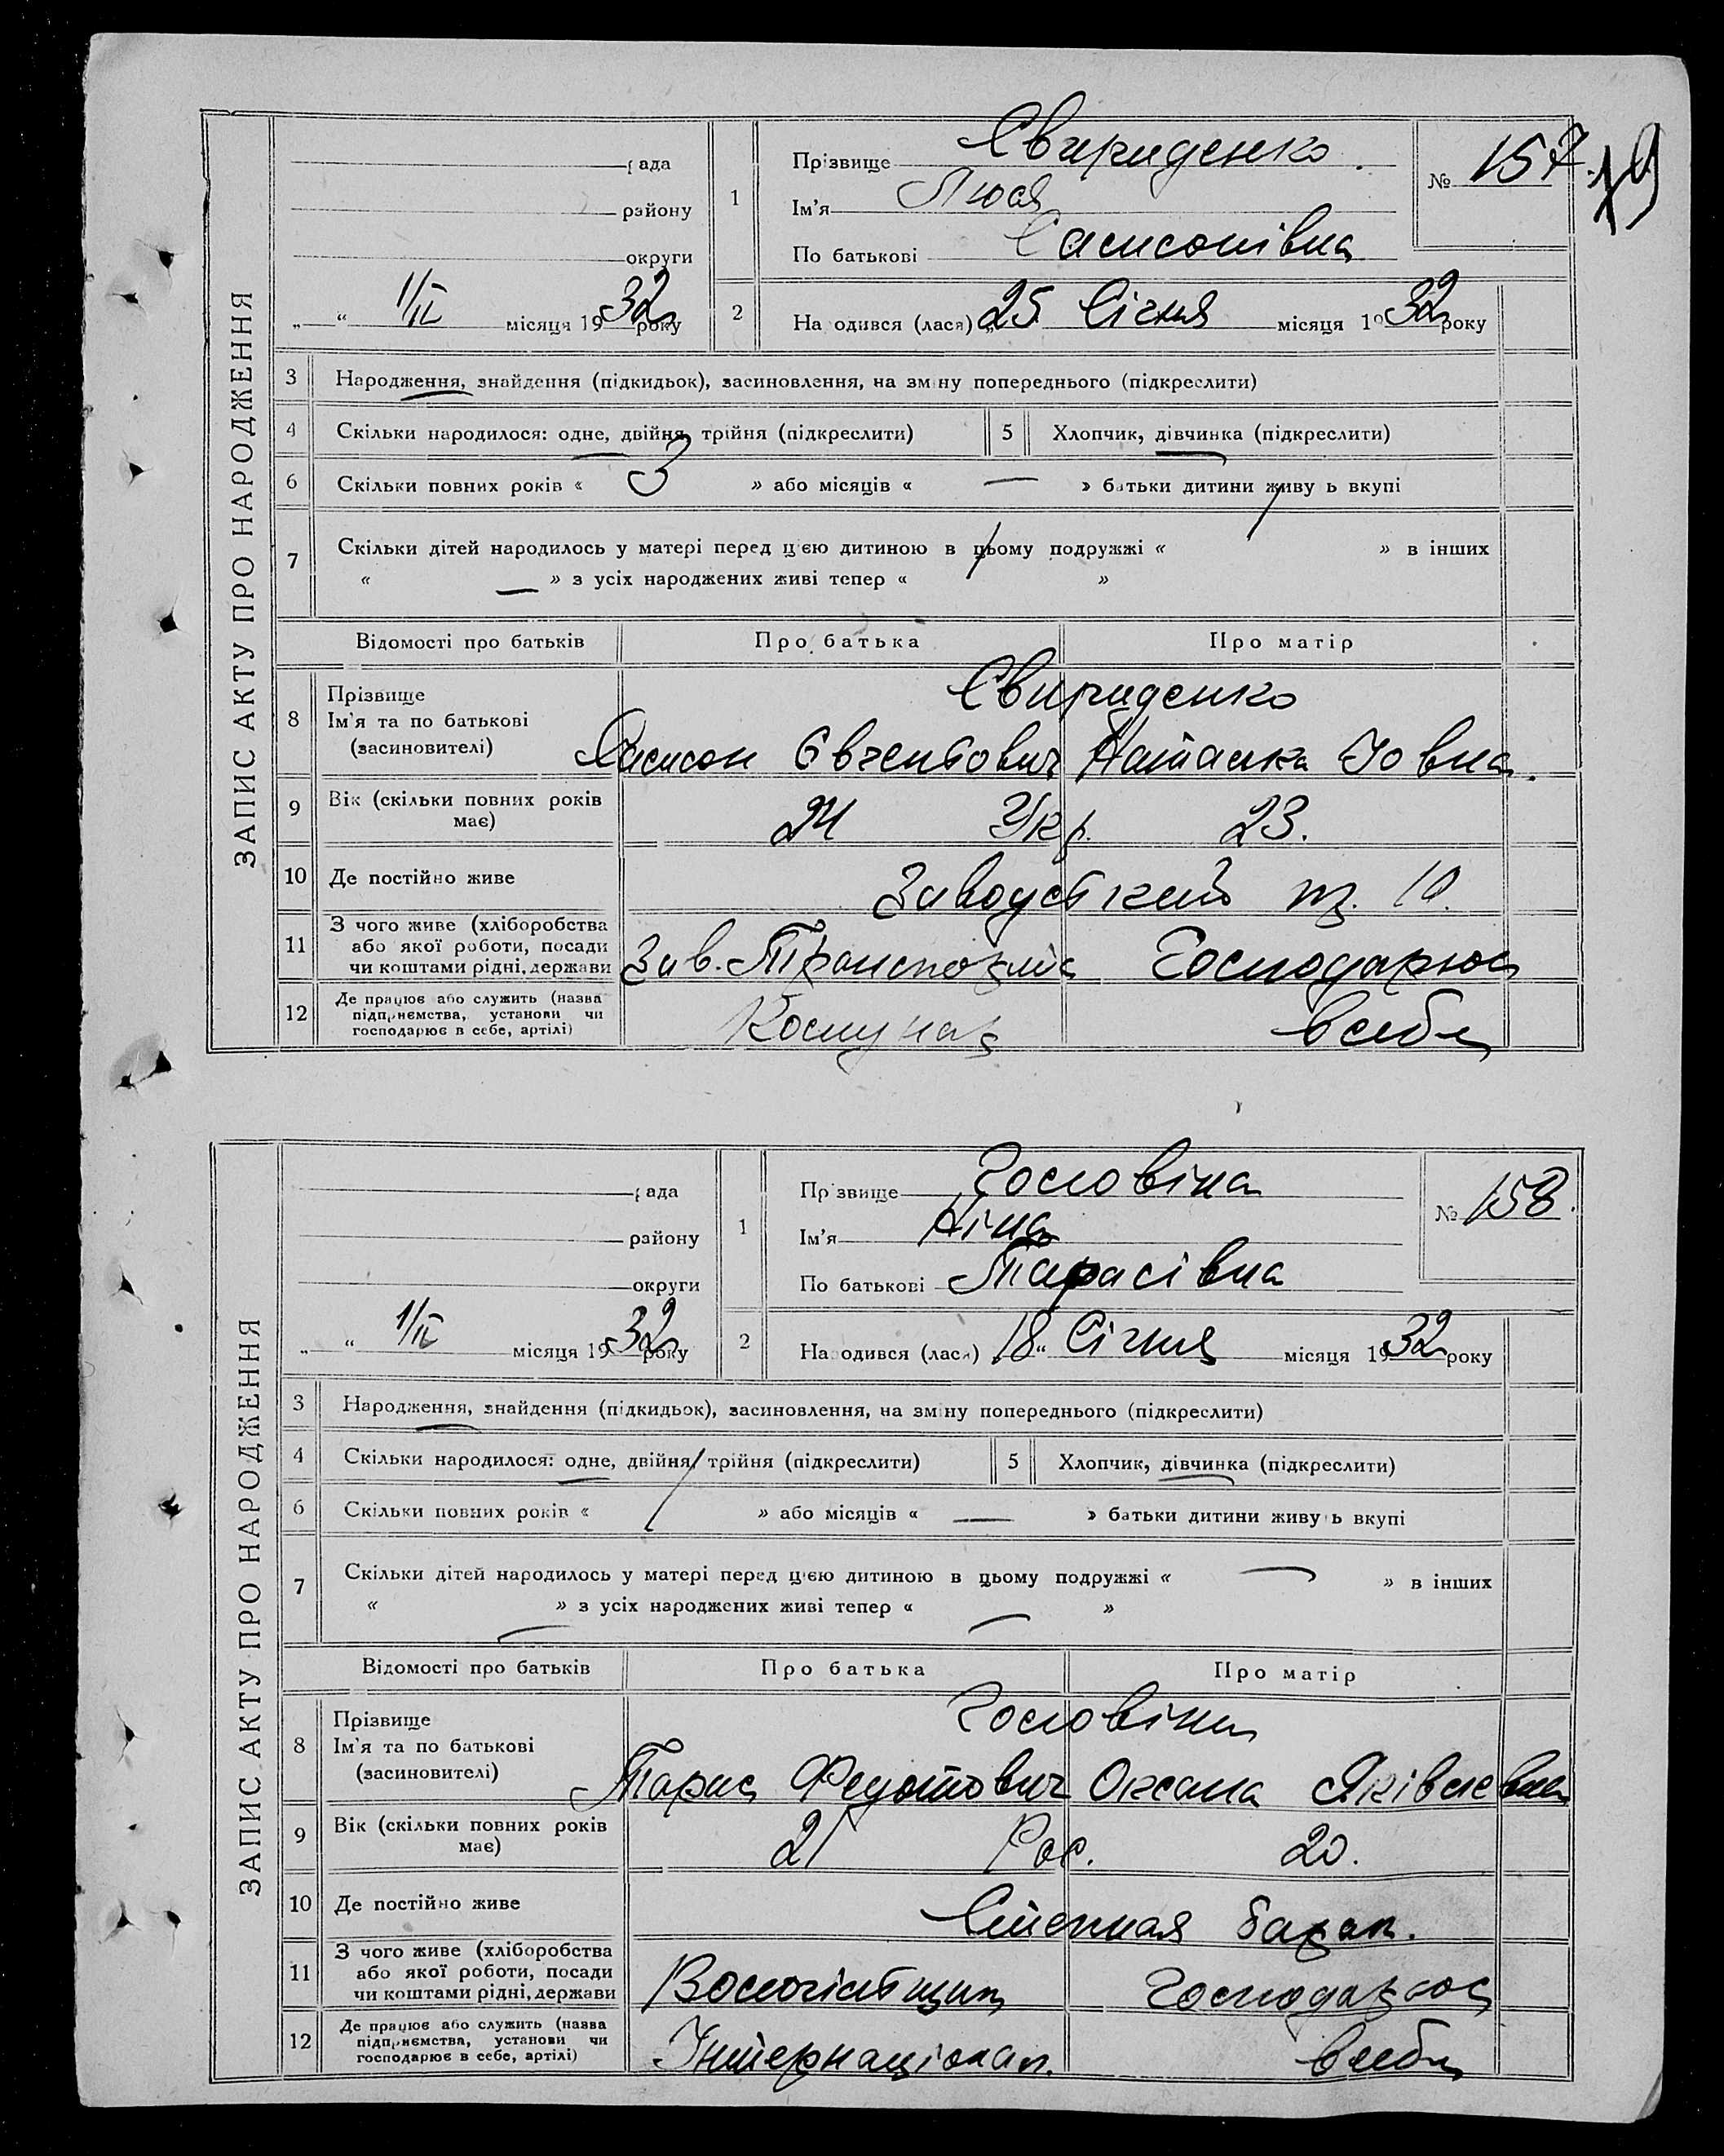 ЗАПИС АКТУ ПРО НАРОДЖЕННЯ
рада
району
округи
„ “ 1/II місяця 1932 року
1
Прізвище Свириденко
Ім'я Люся
По батькові Самсонівна
№ 157.
79
2
Народився (лася) „25 Січня місяця 1932 року
3 Народження, знайдення (підкидьок), засиновлення, на зміну попереднього (підкреслити)
4 Скільки народилося: одне, двійня, трійня (підкреслити) 5 Хлопчик, дівчинка (підкреслити)
6 Скільки повних років « 3 » або місяців « — » батьки дитини живуть вкупі
7 Скільки дітей народилось у матері перед цією дитиною в цьому подружжі « » в інших
« — » з усіх народжених живі тепер « »
Відомості про батьків Про батька Про матір
8 Прізвище
Ім'я та по батькові
(засиновителі)
Свириденко
Самсон Наталка Іовна.
9 Вік (скільки повних років
має)
24 Укр. 23.
10 Де постійно живе
11 З чого живе (хліборобства
або якої роботи, посади
чи коштами рідні, держави
Зав. Господарює
12 Де працює або служить (назва
підприємства, установи чи
господарює в себе, артілі)
Комунар в себе
ЗАПИС АКТУ ПРО НАРОДЖЕННЯ
рада
району
округи
„ “ 1/II місяця 1932 року
1
Прізвище Головіна
Ім'я Ніна
По батькові Тарасівна
№ 158.
2
Народився (лася) 18“ Січня місяця 1932 року
3 Народження, знайдення (підкидьок), засиновлення, на зміну попереднього (підкреслити)
4 Скільки народилося: одне, двійня, трійня (підкреслити) 5 Хлопчик, дівчинка (підкреслити)
6 Скільки повних років « / » або місяців « — » батьки дитини живуть вкупі
7 Скільки дітей народилось у матері перед цією дитиною в цьому подружжі « — » в інших
« — » з усіх народжених живі тепер « — »
Відомості про батьків Про батька Про матір
8 Прізвище
Ім'я та по батькові
(засиновителі)
Головіни
Тарас Федотович Оксана Яківлевна
9 Вік (скільки повних років
має)
21 Рос. 20.
10 Де постійно живе
Степная барак.
11 З чого живе (хліборобства
або якої роботи, посади
чи коштами рідні, держави
Господарює
12 Де працює або служить (назва
підприємства, установи чи
господарює в себе, артілі)
Інтернаціонал. в себе